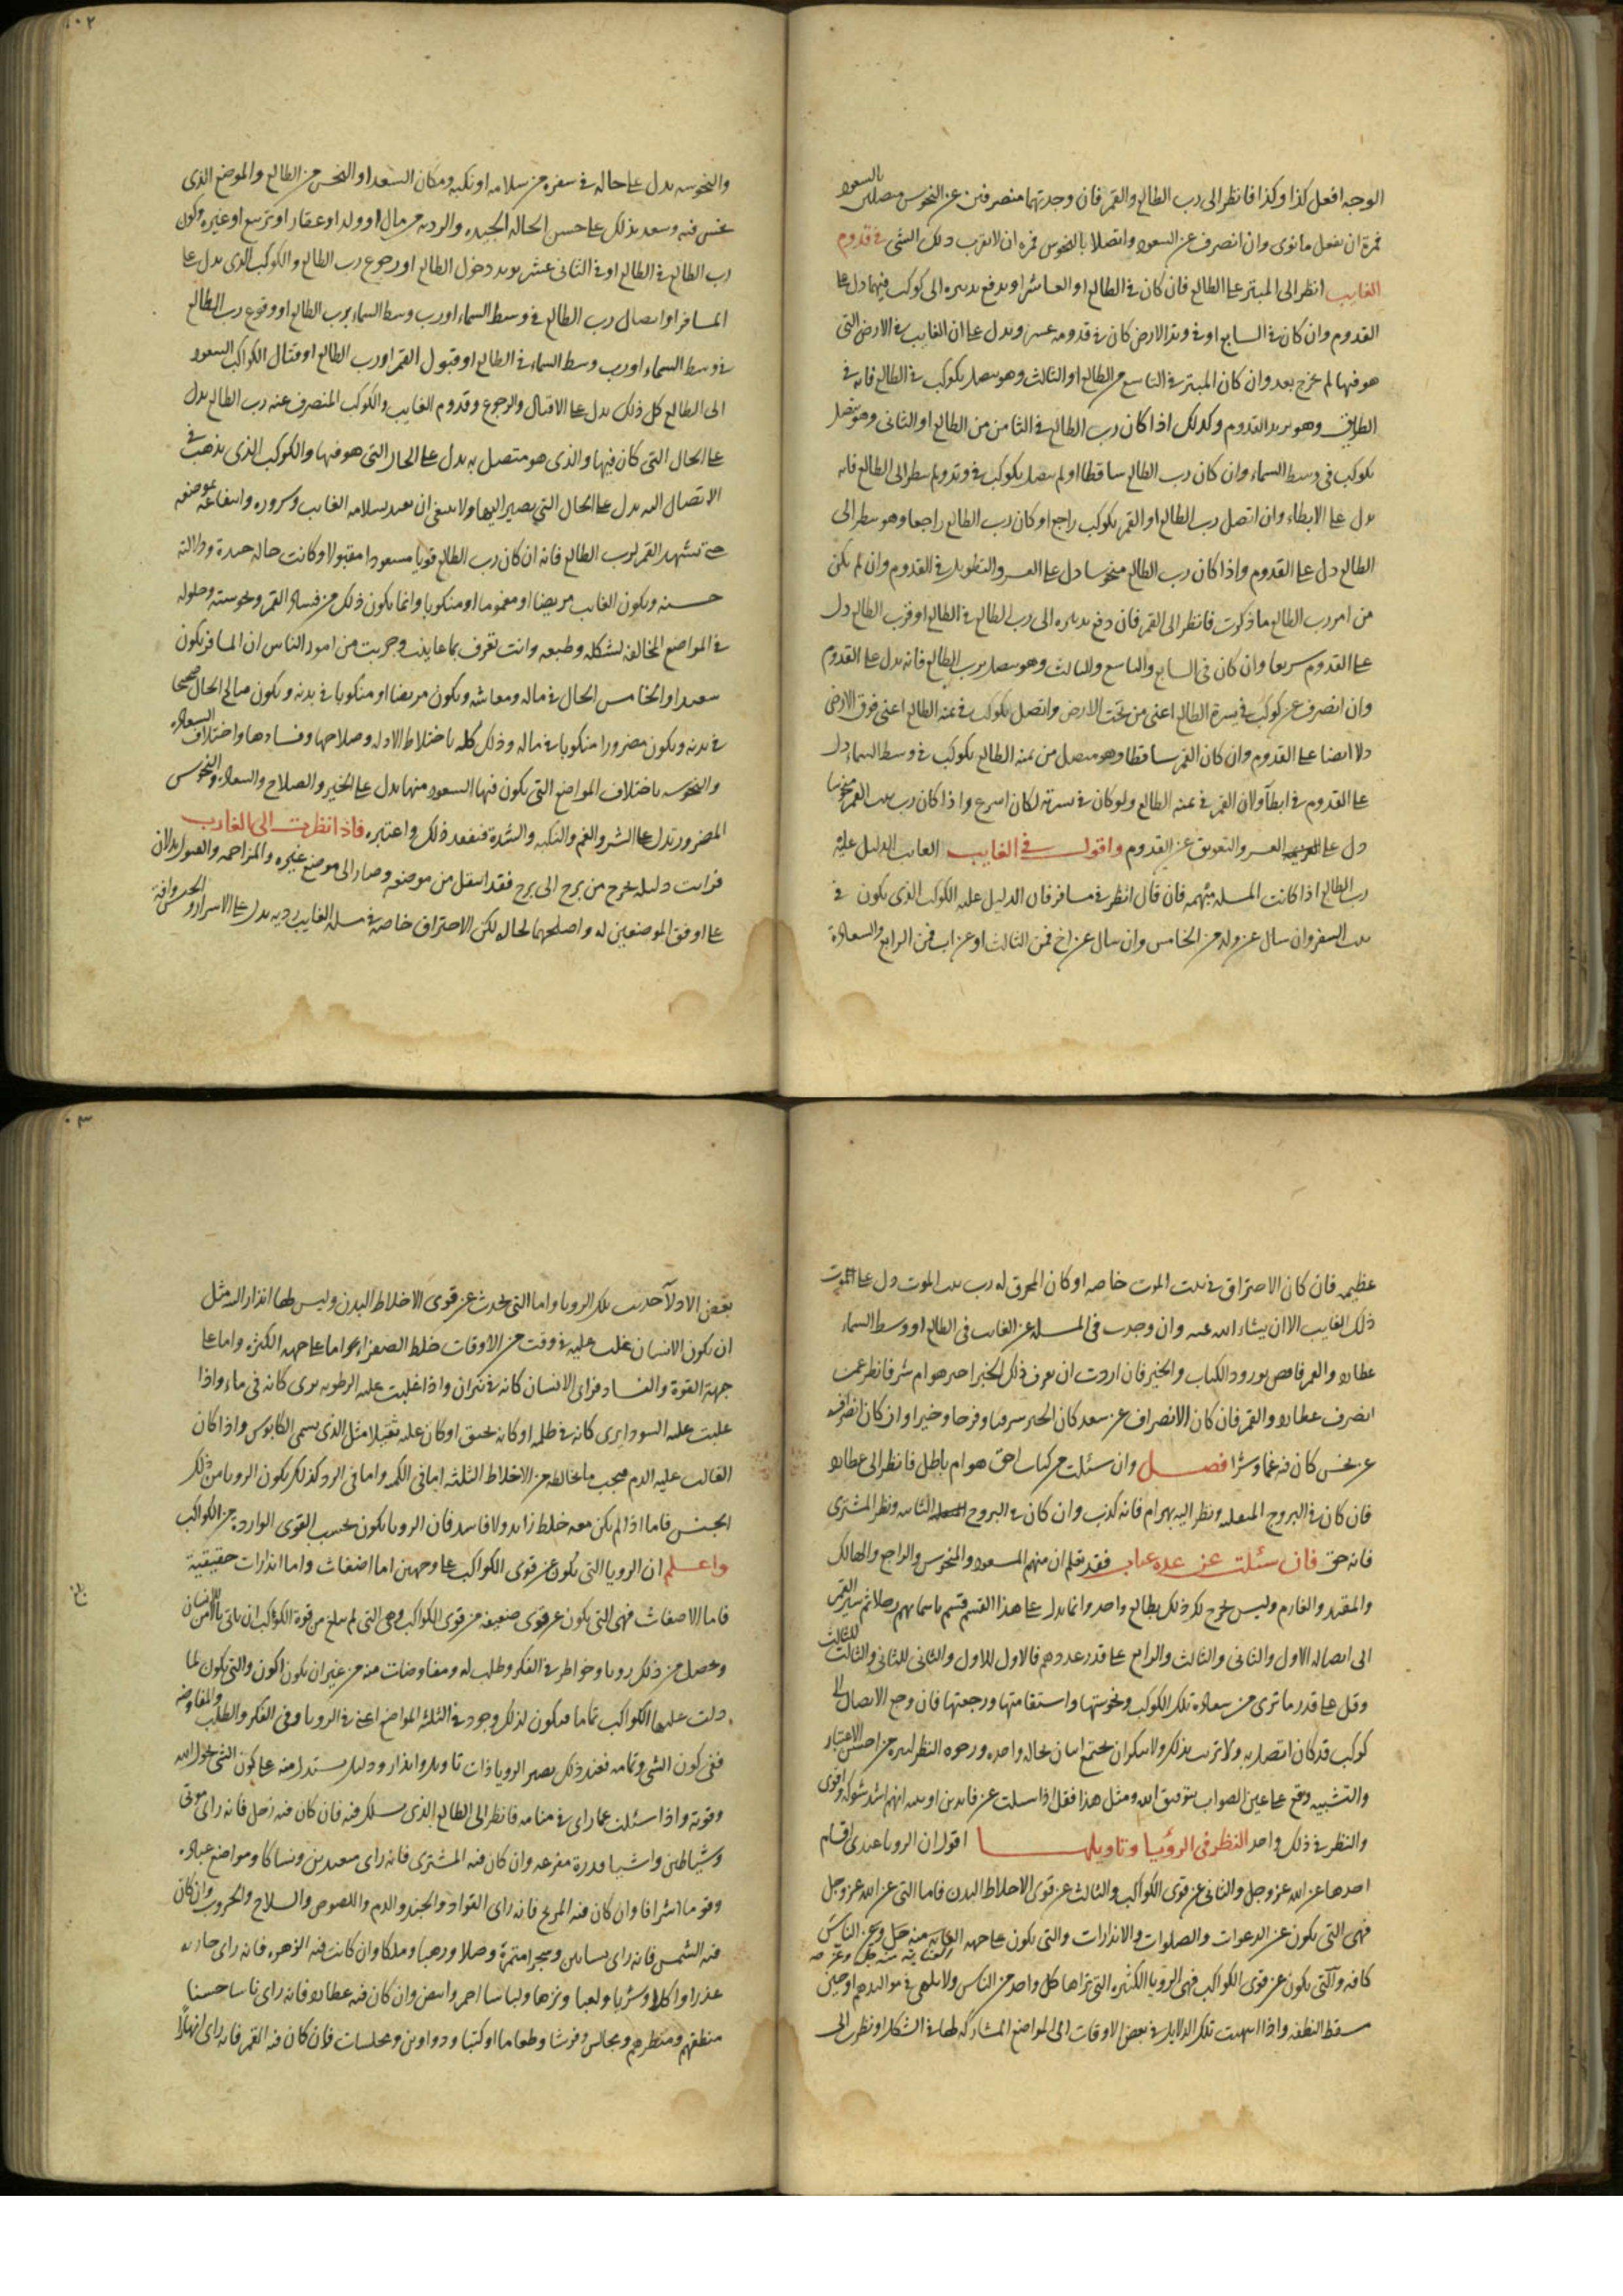 الوجه افعل كذا وكذا فانظر الى رب الطالع والقمر فان وجدتهما منصرفين عن النحوس متصلين بالسعود
فمره ان يفعل ما نوى وان انصرف عن السعود واتصلا بالنحوس فمره ان لا يقرب ذلك الشى فى قدوم
الغايب انظر الى المبتز على الطالع فان كان فى الطالع او العاشر او يدفع تدبيره الى كوكب فيهما دل على
القدوم وان كان فى السابع او فى وتد الارض كان فى قدومه عسر ويدل على ان الغايب فى الارض التى
هو فيها لم يخرج بعد وان كان المبتز فى التاسع من الطالع او الثالث وهو متصل بكوكب فى الطالع فانه فى
الطريق وهو يريد القدوم وكذلك اذا كان رب الطالع فى الثامن من الطالع او الثانى وهو متصل
بكوكب فى وسط السماء وان كان رب الطالع ساقطا او لم يتصل بكوكب فى وتد ولم ينظر الى الطالع فانه
يدل على الابطاء وان اتصل رب الطالع او القمر بكوكب راجع او كان رب الطالع راجعا وهو ينظر الى
الطالع دل على القدوم واذا كان رب الطالع منحوسا دل على العسر والتطويل فى القدوم وان لم يكن
من امر رب الطالع ما ذكرت فانظر الى القمر فان دفع تدبيره الى رب الطالع فى الطالع او قرب الطالع دل
على القدوم سريعا وان كان فى السابع والتاسع والثالث وهو متصل برب الطالع فانه يدل على القدوم
وان انصرف عن كوكب فى يسرة الطالع اعنى من تحت الارض واتصل بكوكب فى يمنه الطالع اعنى فوق الارض
دلا ايضا على القدوم وان كان القمر ساقطا وهو متصل من يمنه الطالع بكوكب فى وسط السماء دل
على القدوم فى ابطآ ولان القمر فى يمنه الطالع ولو كان فى يسرته لكان اسرع واذا كان رب بيت القمر منحوسا
دل على العسر والتعويق عن القدوم واقول فى الغايب الغايب الدليل عليه
رب الطالع اذا كانت المسله مبهمه فان قال انظر فى مسافر فان الدليل عليه الكوكب الذى يكون فى
بيت السفر وان سال عن ولد من الخامس وان سال عن اخ فمن الثالث او عن اب فمن الرابع والسعادة
٠٢
والنحوسه يدل على حاله فى سفره من سلامه او نكبه ومكان السعد او النحس من الطالع والموضع الذى
نحس فيه وسعد يدلك على حسن الحاله الجيده والرديه من مال او ولد او عقار او تزويج او غيره وكون
رب الطالع فى الطالع او فى الثانى عشر يريد دخول الطالع او رجوع رب الطالع والكوكب الذى يدل على
المسافر او اتصال رب الطالع فى وسط السماء او رب وسط السماء برب الطالع او وقوع رب الطالع
فى وسط السماء او رب وسط السماء فى الطالع او قبول القمر او رب الطالع او انتقال الكواكب السعود
الى الطالع كل ذلك يدل على الاقبال والرجوع وقدوم الغايب والكوكب المنصرف عنه رب الطالع يدل
على الحال التى كان فيها والذى هو متصل به يدل على الحال التى هو فيها والكوكب الذى يذهب فى
الاتصال اليه يدل على الحال التى يصير اليها ولا ينبغى ان تعد بسلامه الغايب وسروره وانتفاعه بموضعه
حتى تشهد القمر لرب الطالع فانه ان كان رب الطالع قويا مسعودا مقبولا وكانت حاله جيدة ودلالته
حسنه ويكون الغايب مريضا او مغموما او منكوبا وانما يكون ذلك من فساد القمر ونحوسته وحلوله
فى المواضع المخالفه لشكله وطبعه وانت تعرف بما عاينت وجربت من امور الناس ان المسافر يكون
سعيدا والخامس الحال فى ماله ومعاشه ويكون مريضا او منكوبا فى بدنه ويكون صالح الحال صحيحا
فى بدنه ويكون مضرورا منكوبا فى ماله وذلك كله باختلاط الادله وصلاحها وفسادها واختلاف السعاده
والنحوسه باختلاف المواضع التى يكون فيها السعود منها يدل على الخير والصلاح والسعاده والنحوس
المضرور يدل على الشر والغم والنكبه والشدة فتفقد ذلك واعتبره فاذا نظرت الى الغايب
فرايت دليله يخرج من برج الى برج فقد انتقل من موضعه وصار الى موضع غيره والمزاحمه والقبول يدلان
على اوفق الموضعين له واصلحهما لحاله لكن الاحتراق خاصه فى مسله الغايب رديه يدل على الاسر او الحبس وافة
عظيمه فان كان الاحتراق فى بيت الموت خاصه او كان المحرق له رب بيت الموت دل على الموت
ذلك الغايب الا ان يشاء الله عنه وان وجدت فى المسله عن الغايب فى الطالع او وسط السماء
عطارد والقمر فاقض بورود الكتاب والخبر فان اردت ان تعرف ذلك الخبر اخير هو ام شر فانظر عمن
انصرف عطارد والقمر فان كان الانصراف عن سعد كان الخبر سرورا وفرحا وخيرا وان كان انصرافه
عن نحس كان فيه غما وشرا فصل وان سئلت عن كتاب احق هو ام باطل فانظر الى عطارد
فان كان فى البروج المنقلبه ونظر اليه بهرام فانه كذب وان كان فى البروج الثابته ونظر المشترى
فانه حق فان سئلت عن عده غياب فقد تعلم ان منهم المسعود والمنحوس والراجع والهالك
والمقيد والغارم وليس يخرج لك ذلك بطالع واحد وانما يدل على هذا القسم قسم باسمايهم رجلا ثم سير القمر
الى اتصاله الاول والثانى والثالث والرابع على قدر عددهم فالاول للاول والثانى للثانى والثالث للثالث
وقل على قدر ما ترى من سعادة تلك الكوكب ونحوستها واستقامتها ورجعتها فان رجع الاتصال الى
كوكب قد كان اتصل به ولا ترتب بذلك ولا تنكر ان يجتمع اثنان بحاله واحده ووجوه النظر كثيرة من احسن الاعتبار
والتشبيه وقع على عين الصواب بتوفيق الله ومثل هذا فقل اذا سئلت عن قايدين او ثلثه ايهم اشد شوكه واقوى
والنظر فى ذلك واحد النظر فى الرؤيا وتاويلها اقول ان الرويا عندى اقسام
احدها عن الله عز وجل والثانى عن قوى الكواكب والثالث عن قوى الاخلاط البدن فاما التى عن الله عز وجل
فهى التى يكون عن الدعوات والصلوات والانذارات والتى يكون على جهه العنايه منه جل وعز الناس
العنايه منه جل وعز
كافه والتى يكون عن قوى الكواكب فهى الرويا الكثيره التى يراها كل واحد من الناس ولا يلهى فى مواليدهم او حين
مسقط النطفه واذا انتهت تلك الدلايل فى بعض الاوقات الى المواضع المشاركه لها فى الشكل او نظرت الى
٠٣
بعض الادلآ حدثت تلك الرويا واما التى تحدث عن قوى الاخلاط البدن وليس لها انذار البته مثل
ان يكون الانسان غلب عليه فى وقت من الاوقات خلط الصفراء واما على جهه الكثره واما على
جهة القوة والفساد فراى الانسان كانه فى نيران واذا غلبت عليه الرطوبه يرى كانه فى ماء واذا
غلبت عليه السودا يرى كانه فى ظلمه او كانه يخنق او كان عليه ثقيلا مثل الذى يسمى الكابوس واذا كان
الغالب عليه الدم فيجب ما خالطه من الاخلاط الثلثه اما فى الكميه واما فى الرد كذلك يكون الرويا من ذلك
الجنس فاما اذا لم يكن معه خلط زايد ولا فاسد فان الرويا يكون بحسب القوى الوارده من الكواكب
واعلم ان الرويا التى يكون عن قوى الكواكب على وجهين اما اضغاث واما انذارات حقيقية
فاما الاضغاث فهى التى يكون عن قوى ضعيفه من قوى الكواكب وهى التى لم يبلغ من قوة الكواكب ان ياتى بالانسان
ويحصل من ذلك رويا وخواطر فى الفكر وطلب له ومفاوضات منه من غير ان يكون اكون والتى يكون لما
دلت عليها الكواكب تماما فيكون لذلك وجود فى الثلثه المواضع اعنى فى الرويا وفى الفكر والطلب والمفاوضه
ففى كون الشى وتمامه فعند ذلك يصير الرويا ذات تاويل وانذار ودليل يستدل منه على كون الشى بحول الله
وقوته واذا سئلت عما راى فى منامه فانظر الى الطالع الذى يسلك فيه فان كان فيه زحل فانه راى موتى
وشياطين واشيا قذرة مفزعه وان كان فيه المشترى فانه راى متعبدين ونساكا ومواضع عباده
وقوما اشرافا وان كان فيه المريخ فانه راى القواد والجند والدم واللصوص والسلاح والحروب وان كان
فيه الشمس فانه راى بساتين وشجرا مثمرة وصلا ورهبا وملكا وان كانت فيه الزهره فانه راى جاريه
عذرا واكلا وشربا ولعبا ونزها ولباسا احمر وابيض وان كان فيه عطارد فانه راى ناسا حسنا
منطقهم ومنظرهم ومجالس وفرشا وطعاما او كتبا ودواوين ومجلسات فان كان فيه القمر فانه راى انهارا